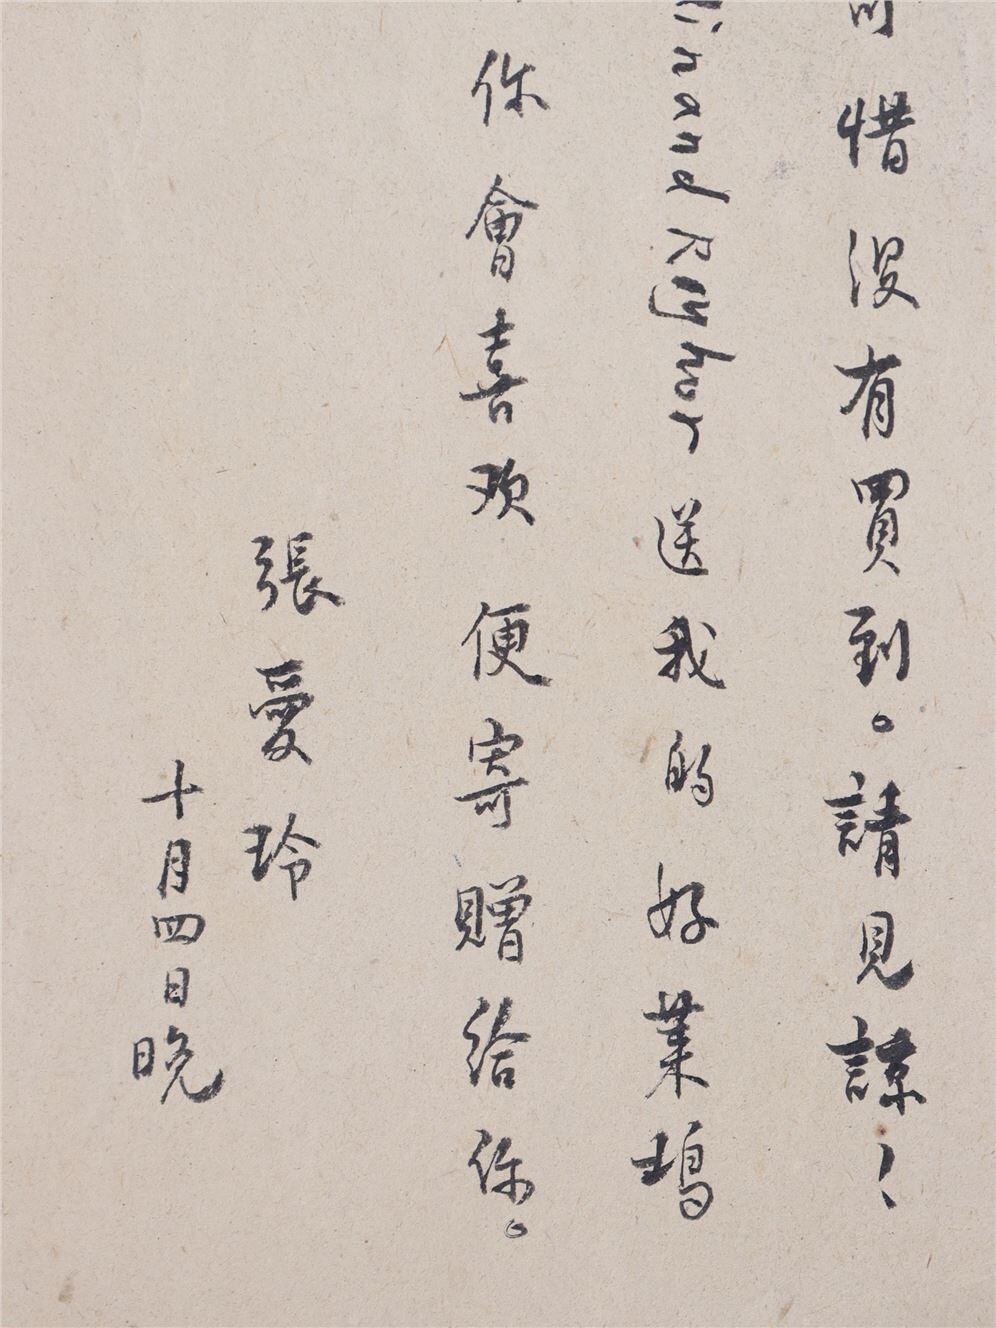 可惜没有買到。請見諒、、
inand Reyher 送我的好莱塢
你會喜欢便寄贈給你。
張愛玲
十月四日晚